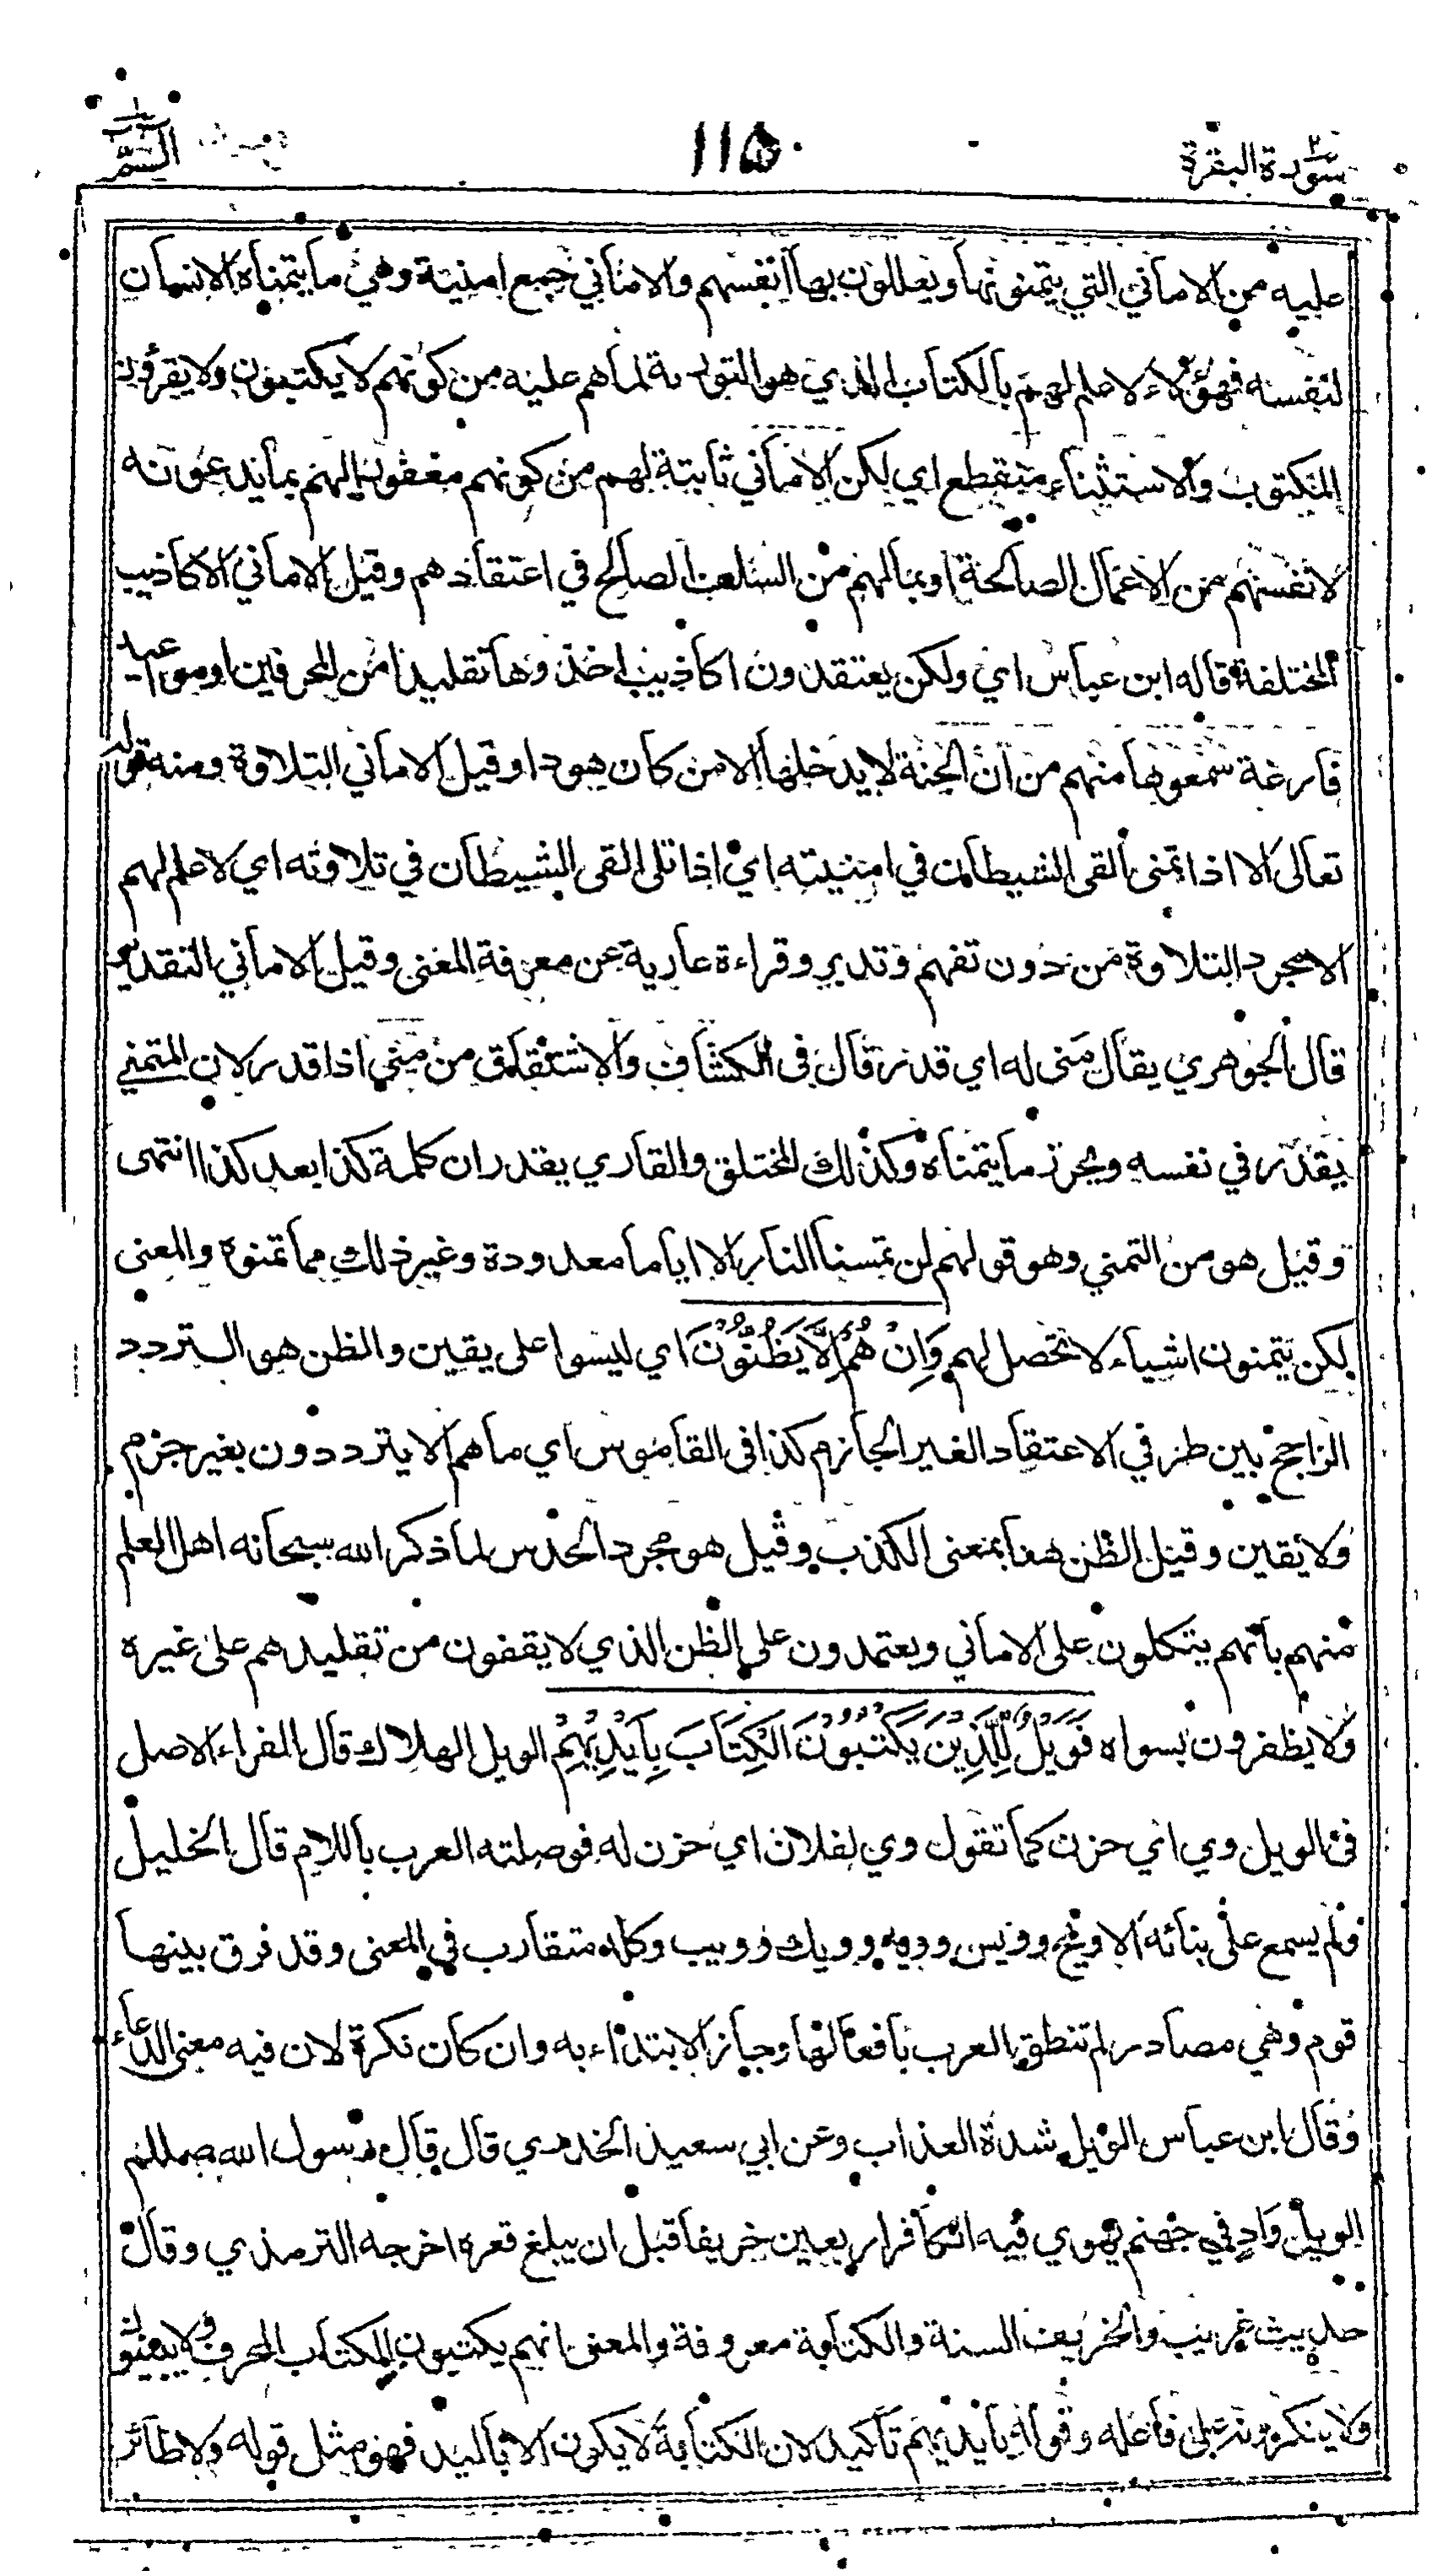 سورة البقرة ١١٥ السّمّ
عليه من الاماني التي يتمنونها ويعللون بها انفسهم والاماني جمع امنية وهي ما يتمناه الانسان
لنفسه فهؤلاء لا علم لهم بالكتاب الذي هو التورىة لما هم عليه من كونهم لا يكتبون ولا يقرؤن
المكتوب والاستثناء منقطع اي لكن الاماني ثابتة لهم من كونهم مغفورا لهم بما يدعونه
لانفسهم من الاعمال الصالحة او بما لهم من السلف الصالح في اعتقادهم وقيل الاماني الاكاذيب
المختلفة قاله ابن عباس اي ولكن يعتقدون اكاذيب اخذوها تقليدا من المحرفين او مواعيد
فارغة سمعوها منهم من ان الجنة لا يدخلها الا من كان هودا وقيل الاماني التلاوة ومنه قوله
تعالى الا اذا تمنى القى الشيطان في امنيته اي اذا تلى القى الشيطان في تلاوته اي لا علم لهم
الا مجرد التلاوة من دون تفهم وتدبر وقراءة عارية عن معرفة المعنى وقيل الاماني التقدير
قال الجوهري يقال منى له اي قدر قال في الكشاف والاشتقاق من منى اذا قدر لان المتمني
يقدر في نفسه ويحرز ما يتمناه وكذلك المختلق والقاري يقدر ان كلمة كذا بعد كذا انتهى
وقيل هو من التمني وهو قولهم لن تمسنا النار الا اياما معدودة وغير ذلك مما تمنوه والمعنى
لكن يتمنون اشياء لا تحصل لهم وَاِنْ هُمْ اِلَّا يَظُنُّوْنَ اي ليسوا على يقين والظن هو التردد
الراجح بين طرفي الاعتقاد الغير الجازم كذا في القاموس اي ما هم الا يترددون بغير جزم
ولا يقين وقيل الظن هنا بمعنى الكذب وقيل هو مجرد الحدس لما ذكر الله سبحانه اهل العلم
منهم بانهم يتكلون على الاماني ويعتمدون على الظن الذي لا يقفون من تقليدهم على غيره
ولا يظفرون بسواه فَوَيْلٌ لِّلَّذِيْنَ يَكْتُبُوْنَ الْكِتَابَ بِاَيْدِيْهِمْ الويل الهلاك قال الفراء الاصل
في الويل وي اي حزن كما تقول وي لفلان اي حزن له فوصلته العرب باللام قال الخليل
ولم يسمع على بنائه الا ويح وويس وويه وويك وويب وكله متقارب في المعنى وقد فرق بينها
قوم وهي مصادر لم تنطق العرب بافعالها وجاز الابتداء به وان كان نكرة لان فيه معنى الدعاء
وقال ابن عباس الويل شدة العذاب وعن ابي سعيد الخدري قال قال رسول الله صلالم
الويل واد في جهنم يهوي فيه الكافر اربعين خريفا قبل ان يبلغ قعره اخرجه الترمذي وقال
حديث غريب والخريف السنة والكتابة معروفة والمعنى انهم يكتبون الكتاب المحرف ولا يبينون
ولا ينكرونه على فاعله وقوله بايديهم تاكيد لان الكتابة لا يكون الا باليد فهو مثل قوله ولا طائر